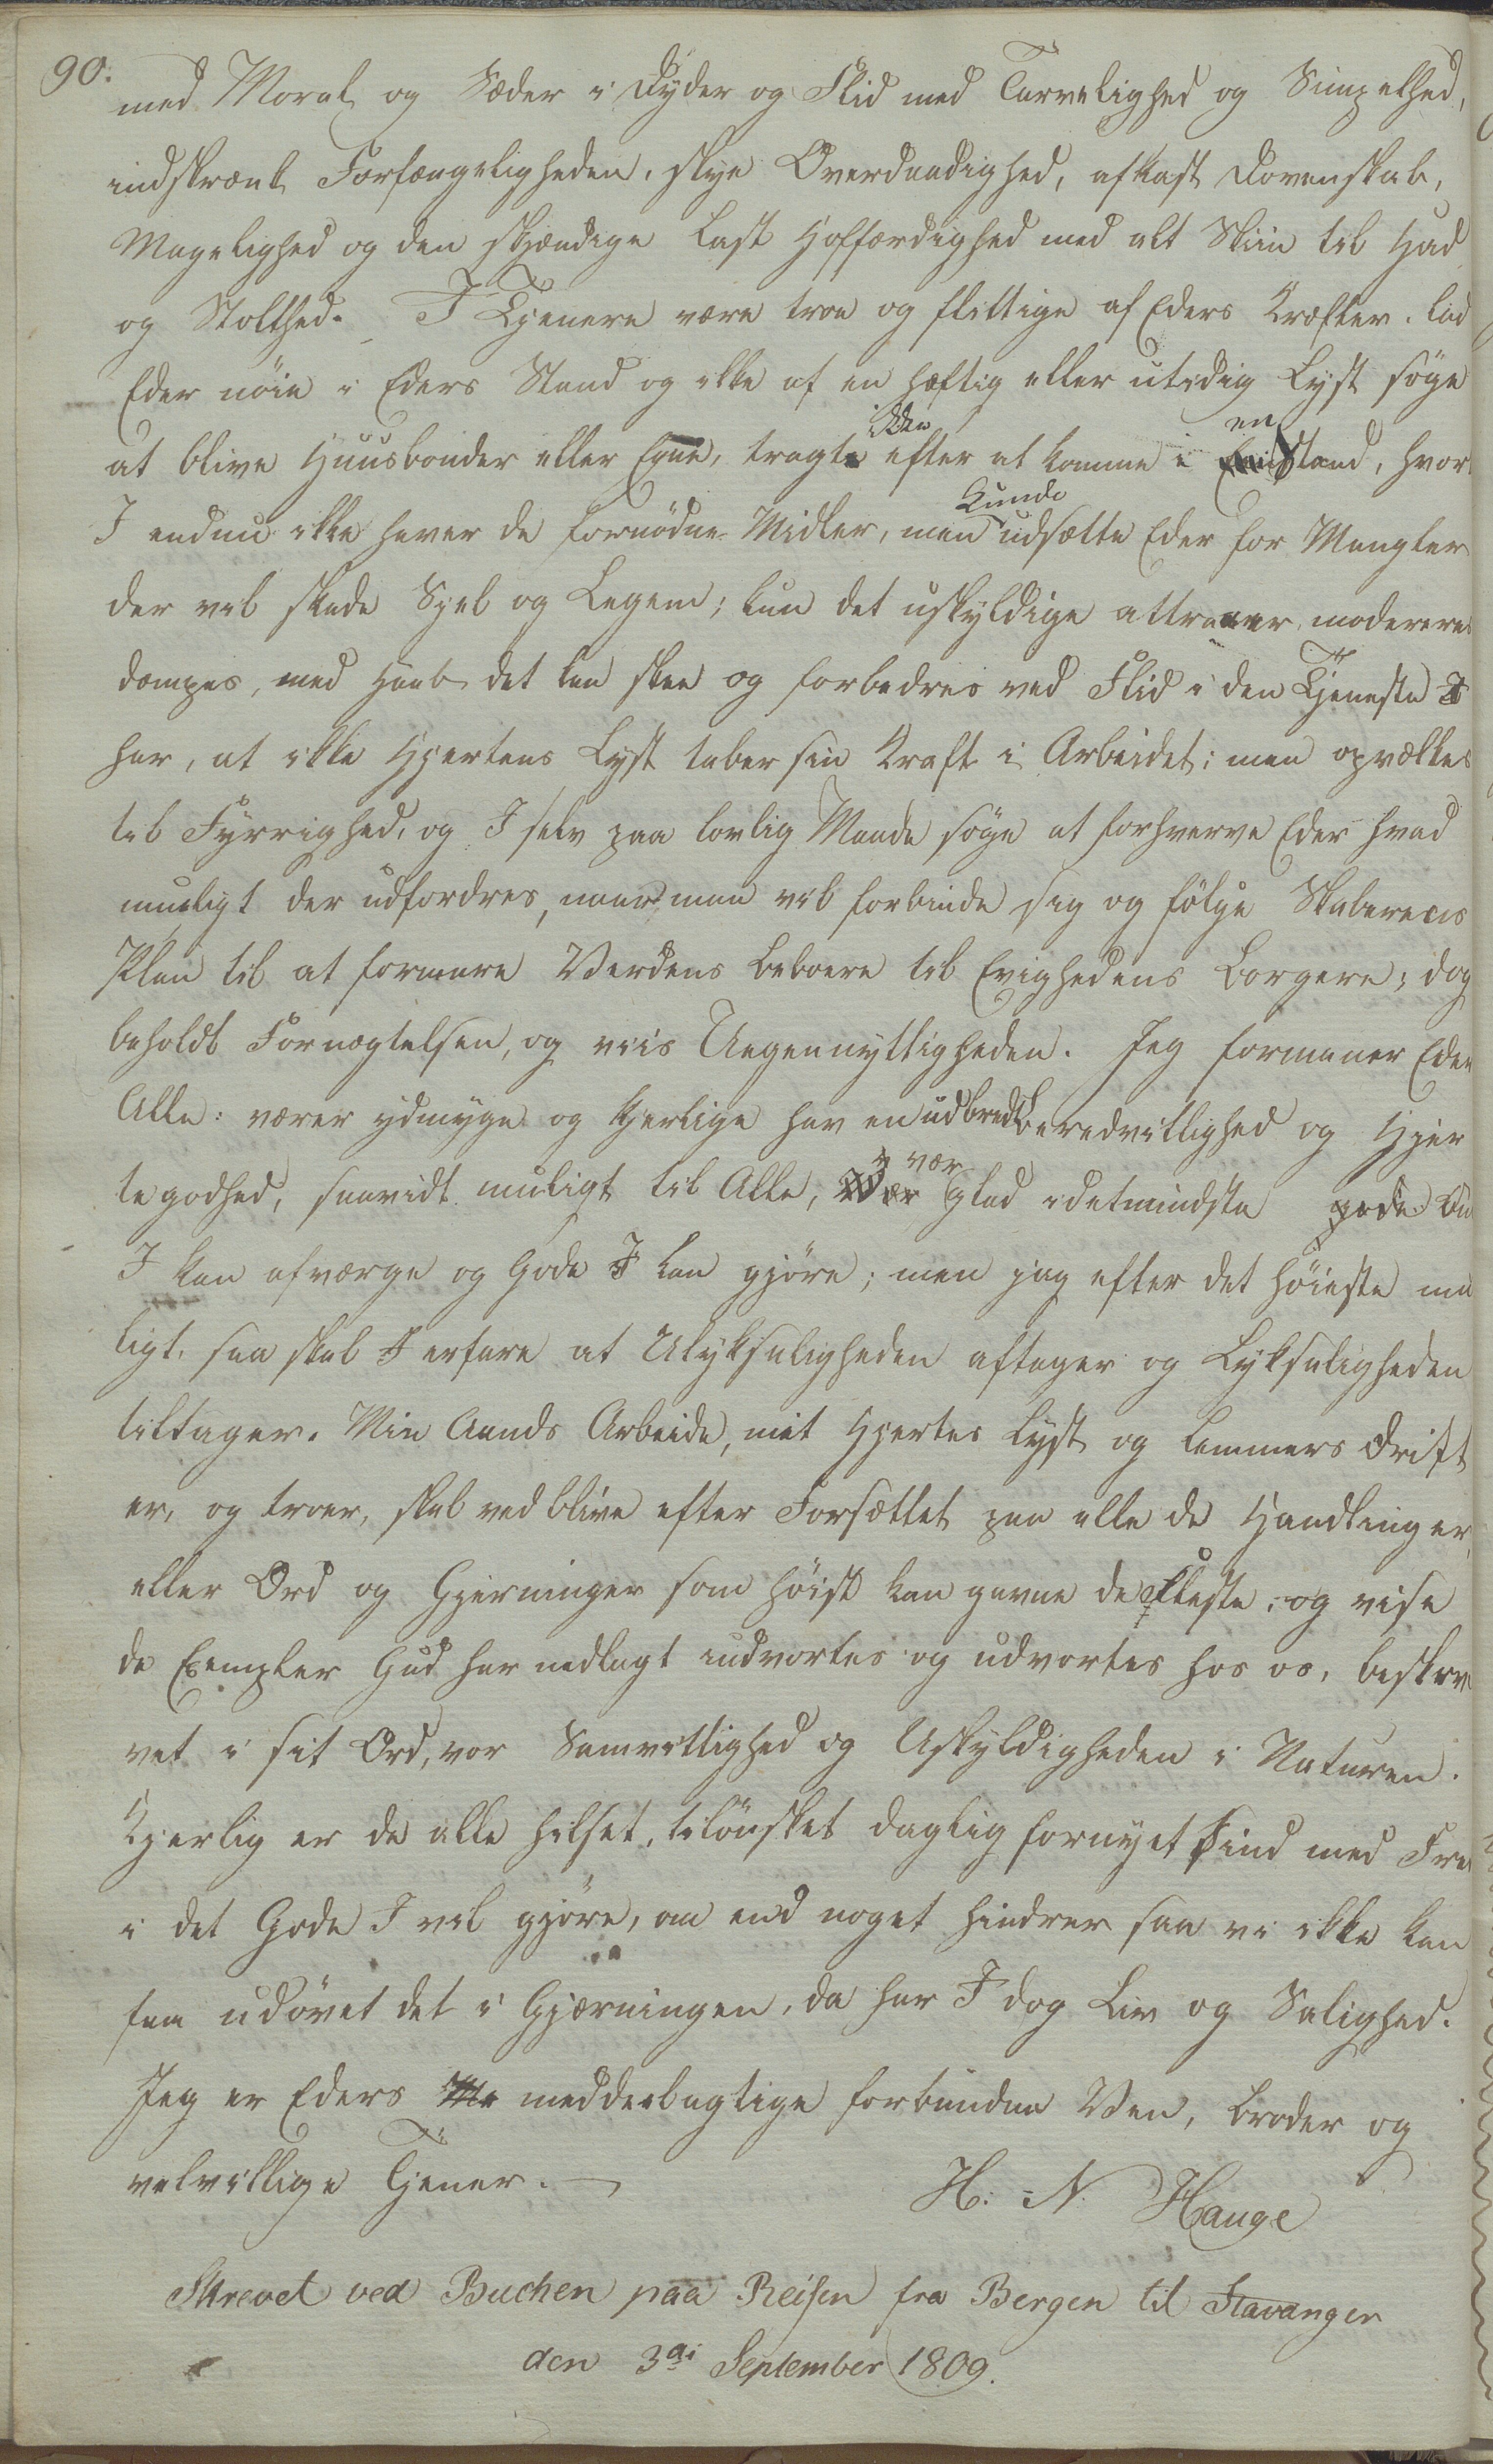 90.
med Moral og Sæder i Dyder og Flid med Tarvelighed og Simpelhed,
indskrænk Forfængeligheden, skye Overdaadighed, afkast Dovenskab,
Magelighed og den skjændige Last Hoffærdighed med alt Skin til Had
og Stolthed. I Tjenere være troe og flittige af Eders Kræfter. lad
Eder nöie i Eders Stand og ikke af en hæftig eller utidig Lyst söge
at blive Huusbonder eller Egne, tragte ikke efter at komme i en Stand, hvor
I endnu ikke haver de fornödne Midler, men kunde udsætte Eder for Mangler
der vil skade Sjel og Legem; kun det uskyldige attraaer modereres
dæmpes, med Haab det kan skee og forbedres ved Flid i den Tjeneste I
har, at ikke Hjertens Lyst taber sin Kraft i Arbeidet; men opvækkes
til Fyrrighed, og I selv paa lovlig Maade söge at forhverve Eder hvad
mueligt der udfordres, naar man vil forbinde sig og fölge Skaberens
Plan til at formere Verdens Beboere til Evighedens Borgere; dog
beholdt Fornægtelsen, og viis Uegennyttigheden. Jeg formaner Eder
Alle: værer ydmyge og kjerlige hav en udbredt Beredvillighed og Hjer
tegodhed, saavidt muligt til Alle, vær glad idetmindste
I kan afværge og Gode I kan gjöre; men jag efter det höieste mu
ligt, saa skal I erfare at Ulyksaligheden aftager og Lyksaligheden
tiltager. Min Aands Arbeide, mit Hjertes Lyst og Lemmers Drift
er, og troer, skal vedblive efter Forsættet paa alle de Handlinger,
eller Ord og Gjerninger som höist kan gavne de fleste; og vise
de Exempler Gud har nedlagt indvortes og udvortes hos os, beskre
vet i sit Ord, vor Samvittighed og Uskyldigheden i Naturen.
Kjerlig er de alle hilset, tilönsket daglig fornyet Sind med Fred
i det Gode I vil gjöre, om end noget hindrer saa vi ikke kan
faa udövet det i Gjærningen, da har I dog Liv og Salighed.
Jeg er Eders meddeelagtige forbundne Ven, Broder og
velvillige Tjener.
H. N. Hauge
Skrevet ved Buchen paa Reisen fra Bergen til Stavanger
den 3die September 1809.